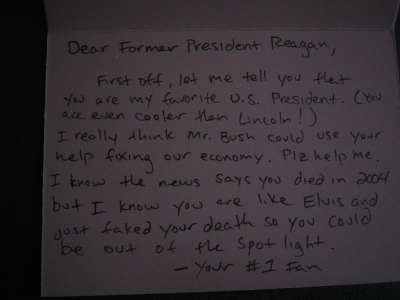 Dear Former President Reagan,
First off, let me tell you that
you are my favorite U.S. President. (You
are even cooler than Lincoln!)
I really think Mr. Bush could use your
help fixing our economy. Plz help me.
I know the news says you died in 2004
but I know you are like Elvis and
just faked your death so you could
be out of the spot light.
- Your #1 Fan